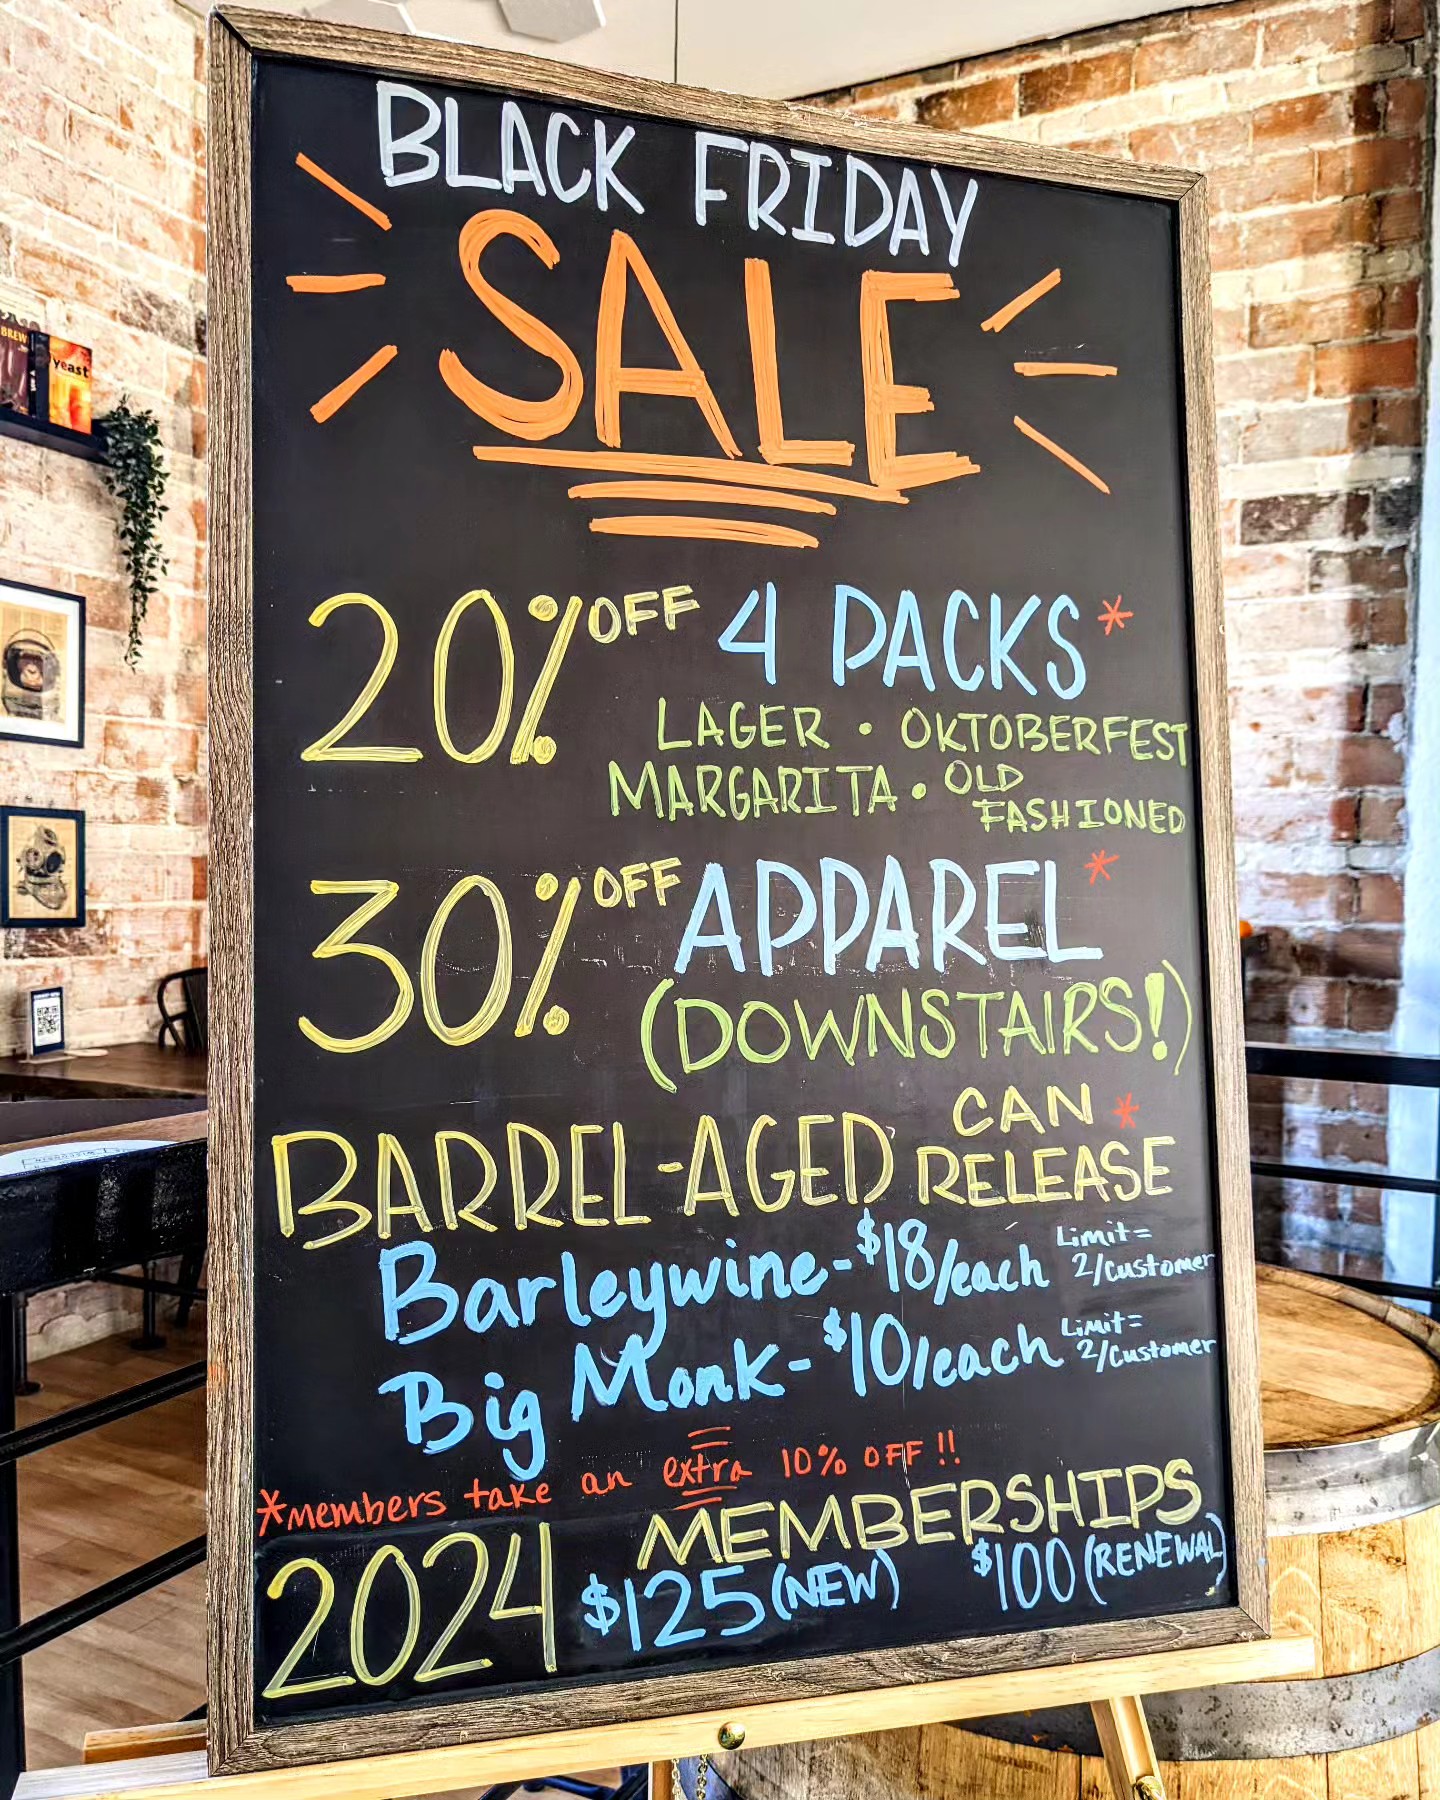 BLACK FRIDAY
SALE
20% OFF 4 PACKS*
LAGER • OKTOBERFEST
MARGARITA • OLD
FASHIONED
30% OFF APPAREL*
(DOWNSTAIRS!)
BARREL-AGED CAN RELEASE*
Barleywine - $18/each Limit= 2/customer
Big Monk - $10/each Limit= 2/customer
*members take an extra 10% OFF!!
2024 MEMBERSHIPS
$125 (NEW) $100 (RENEWAL)
BREW
yeast